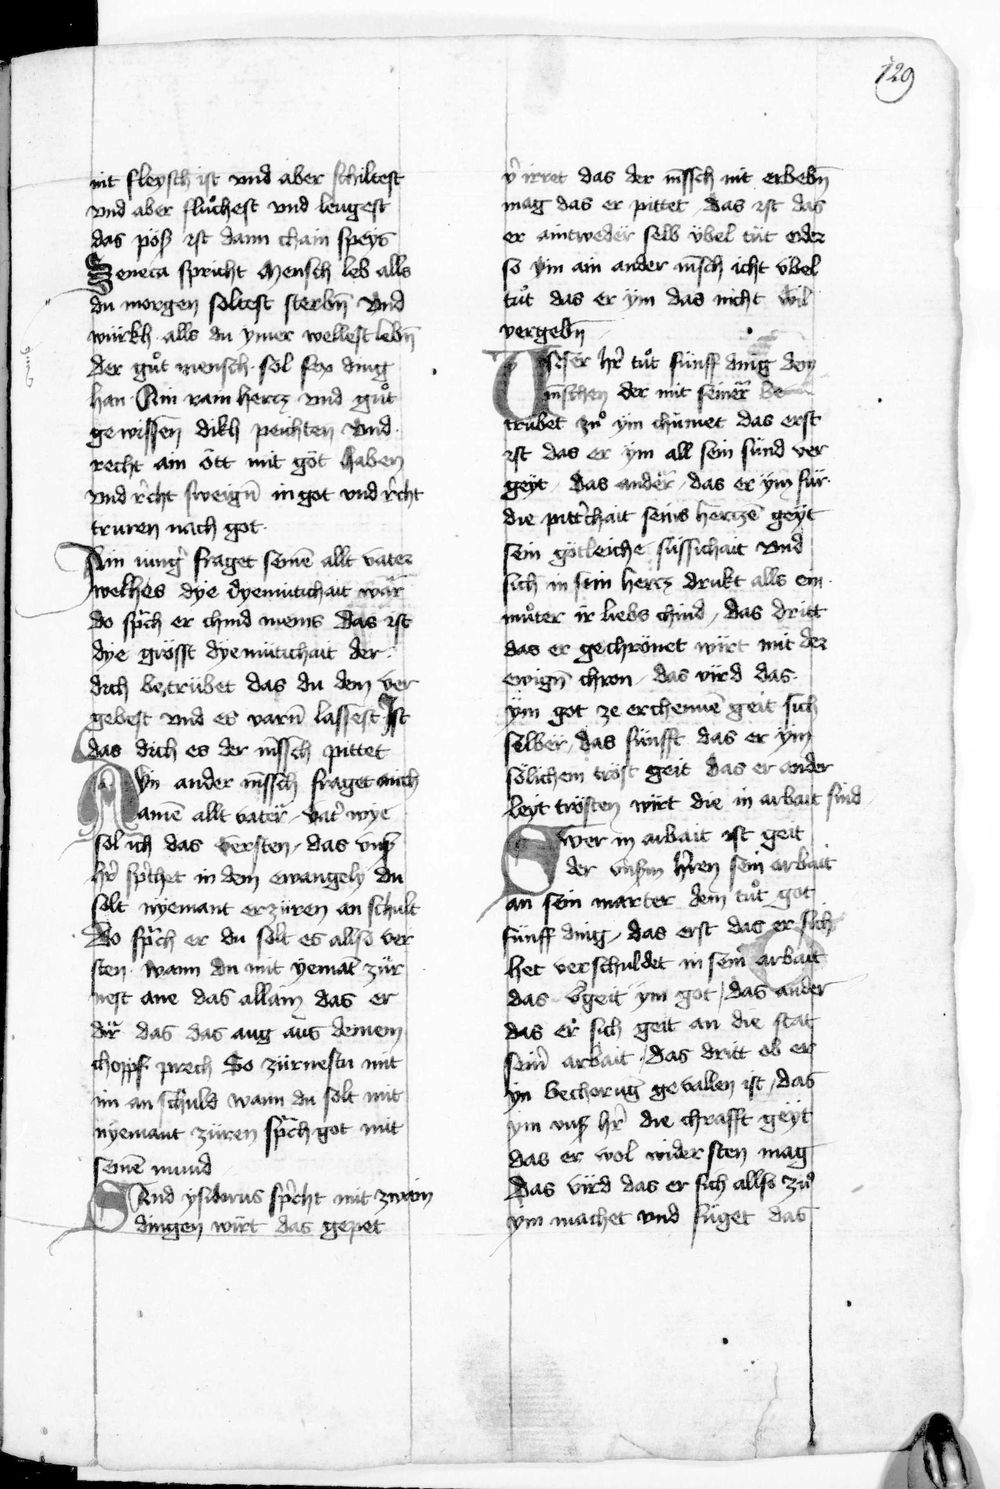 129
nit fleysch ist vnd aber schiltest
vnd aber flůchest vnd leugest
das pöß ist dann chain speys
Seneca spricht Mensch leb alls
du morgen soltest sterbn̄ vnd
würkh alls du ymer wellest lebn̄
Der gůt mensch sol sex ding
han Ain rain hercz vnd gůt
gewissen dikh peichten vnd
recht ain ött mit got haben
vnd rͤcht sweign̄ in got vnd rͤcht
truren nach got
Ain iungͤ fraget seinē allt vater
welhes dye dyemütichait wär
do spͣch er chind meins das ist
dye grösst dyemütichait der
dich betrübet das du dem ver
gebest vnd es varn̄ lassest Ist
das dich es der mēsch pittet
Ayn ander mēsch fraget auch
ainē allt vater vatͤ wye
sol ich das versten das vnsͤ
hrͤ spͥchet in dem ewangely du
solt nyemant erzüren an schult
Do spͣch er du solt es allso ver
sten wann du mit yemāt zür
nest ane das allain das er
dir das das aug aus deinem
chopf prech So zürnestu nit
im an schuld wann du solt mit
nyemant züren spͣch got mit
seinē mund
Sand ysidorus spͥcht mit zwain
dingen wirt das gepet
vͤirret das der mēsch nit erbebn̄
mag das er pittet das ist das
er aintweder selb übel tüt oder
so ym ain ander mēsch icht übel
tůt das er ym das nicht wil
vergebn̄
Vnser hrͤ tůt fünff ding dem
mēschen der mit seiner be
trübet zů ym chümet das erst
ist das er ym all sein sünd ver
geyt das ander das er ym für
die pittͤchait seins herczē geyt
sein götleiche süssichait vnd
sich in sein hercz drukt alls ein
můter ir liebs chind das dritt
das er gechrönet wirt mit der
ewign̄ chron das vird das
ym got ze erchennē geit sich
selber das fünfft das er ym
sölichem tröst geit das er ander
leyt trösten wirt die in arbait sind
Swer in arbait ist geit
der vnsm̄ hͤren sein arbait
an sein marter dem tůt got
fünff ding das erst das er sich
het verschuldet in seinͤ arbait
das vͤgeit ym got das ander
das er sich geit an die stat
seinͤ arbait das dritt ob er
yn bechorūg gevallen ist das
ym vnsͤ hrͤ die chrafft geyt
das er wol wider sten mag
Das vird das er sich allso zů
ym machet vnd füget das